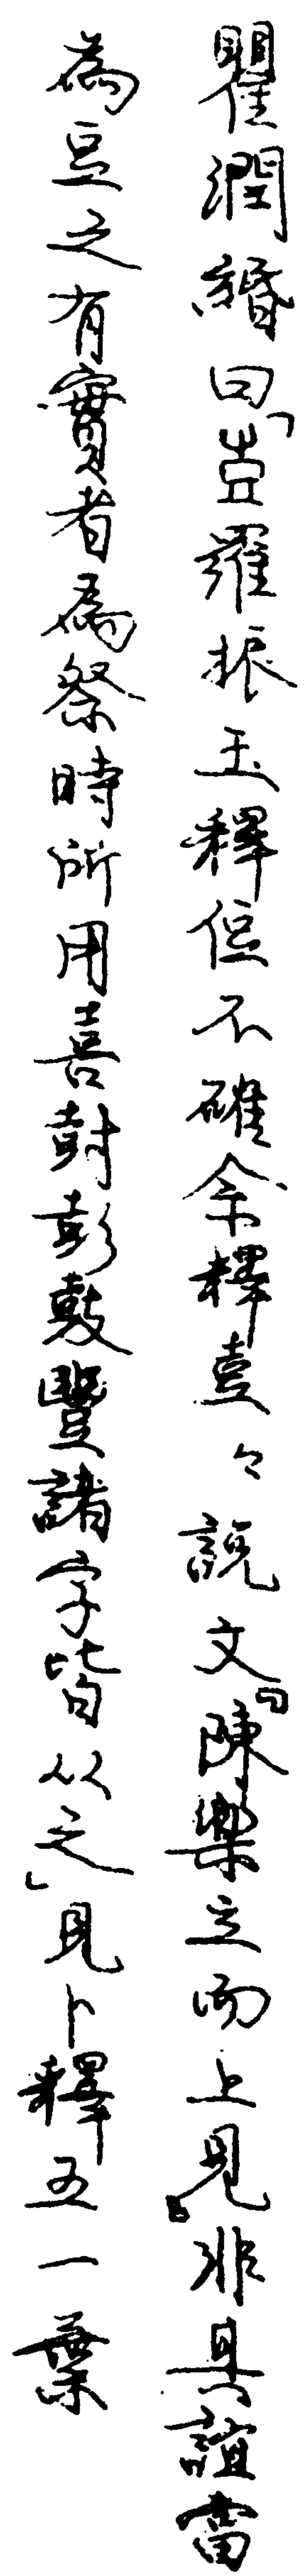 瞿潤緡曰「壴羅振玉釋位不確余釋壴々說文『陳樂立而上見』非具誼當
為豆之有實者為祭時所用喜尌彭鼓豐諸字皆从之」見卜釋五一葉